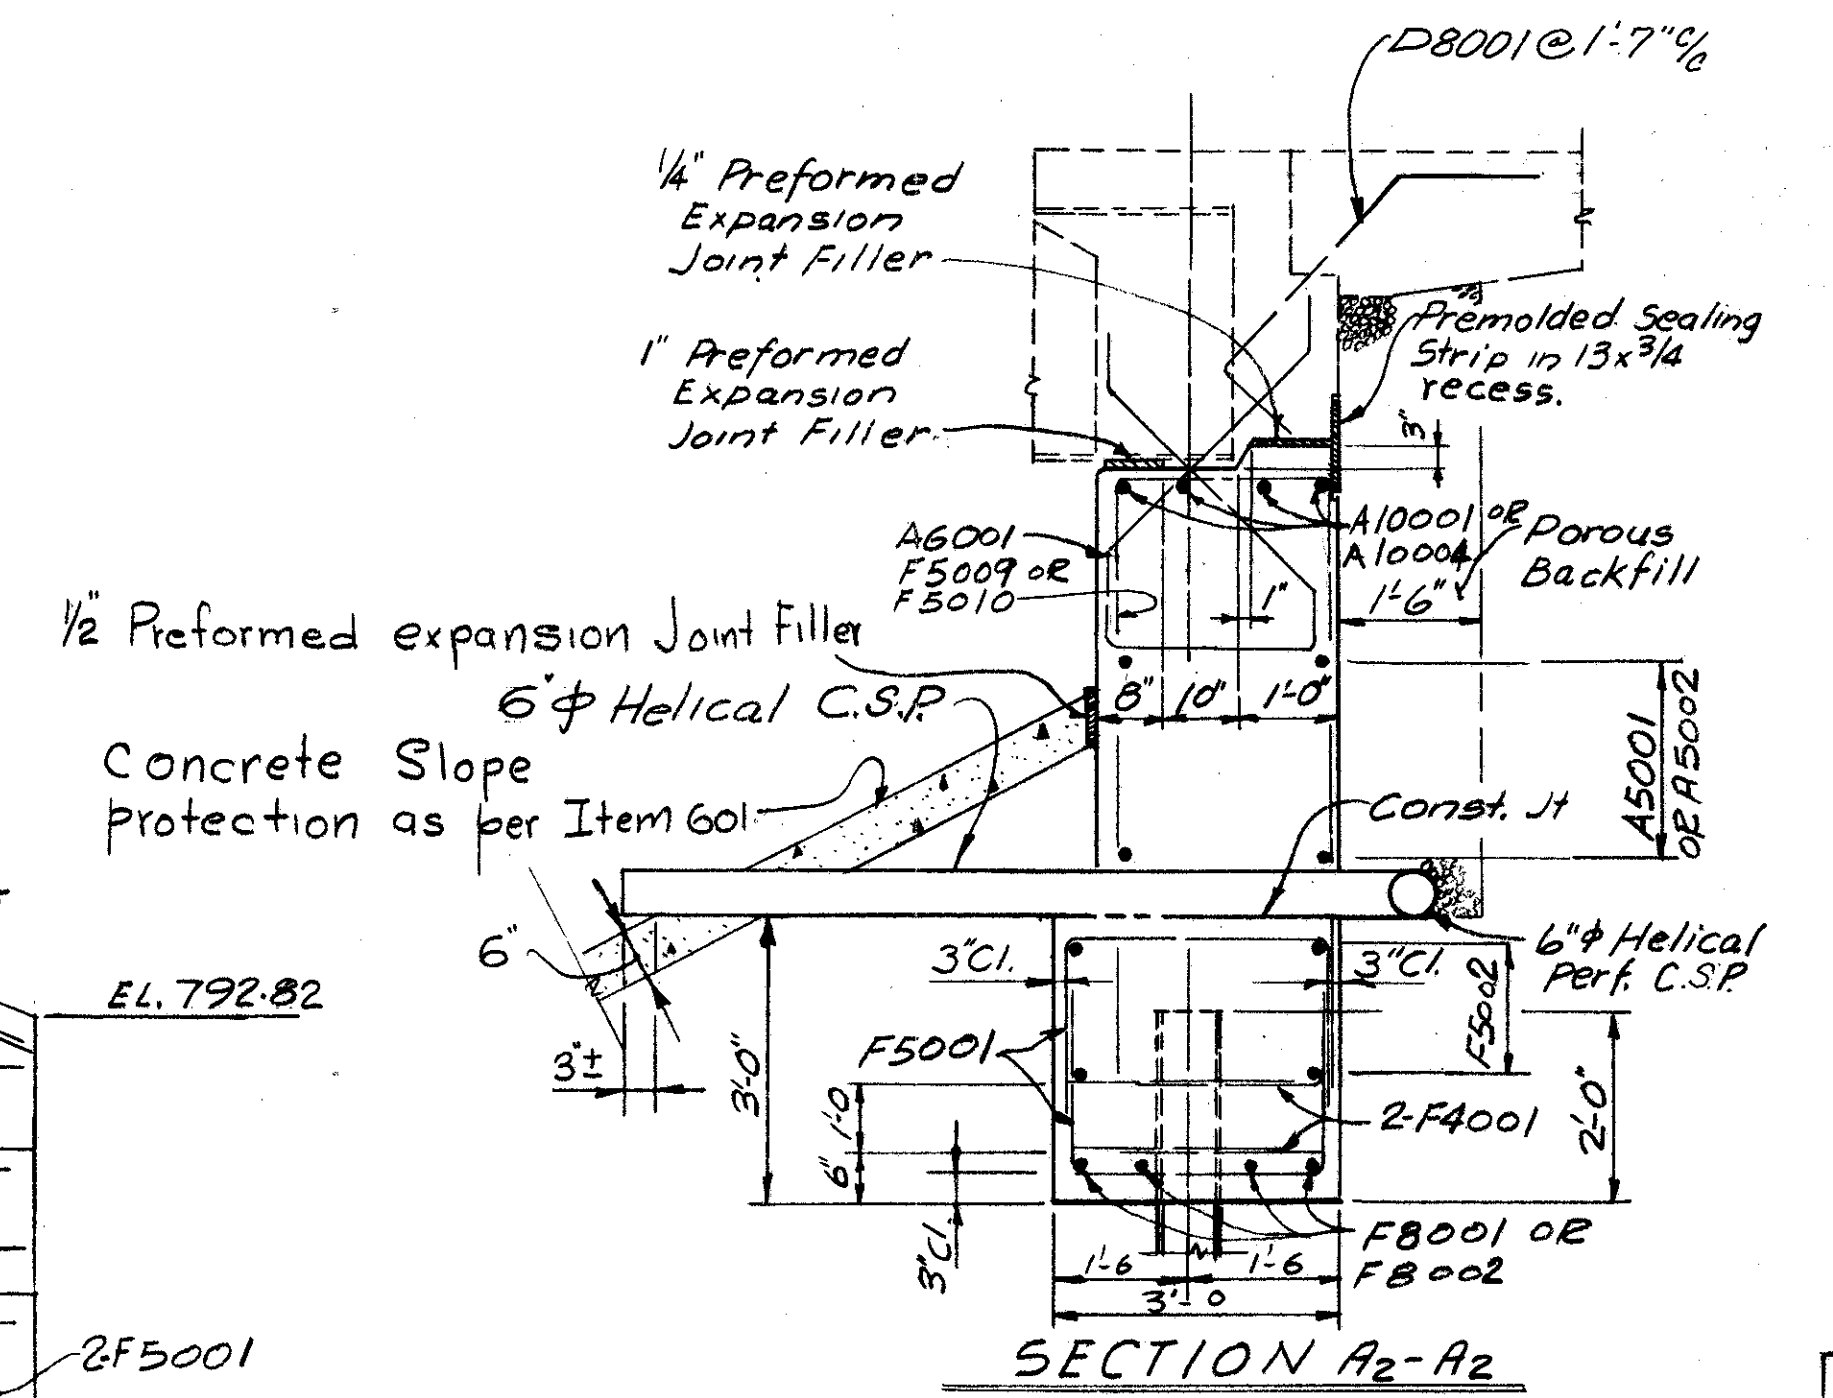 D8001 @ 1'-7" c/c
1/4" Preformed
Expansion
Joint Filler
1" Preformed
Expansion
Joint Filler
Premolded Sealing
Strip in 13x3/4
recess.
3"
A6001
F5009 OR
F5010
A10001 OR
A10004
Porous
Backfill
1'-6"
1"
1/2" Preformed expansion Joint Filler
6"φ Helical C.S.P.
8"
10"
1'-0"
A5001
OR A5002
Concrete Slope
protection as per Item 601
Const. Jt
6"
3"±
EL. 792.82
3"Cl.
3"Cl.
6"φ Helical
Perf. C.S.P.
F5002
F5001
3'-0"
1'-0
6"
3"Cl.
2-F4001
2'-0"
F8001 OR
F8002
1'-6
1'-6
3'-0
2-F5001
SECTION A2-A2